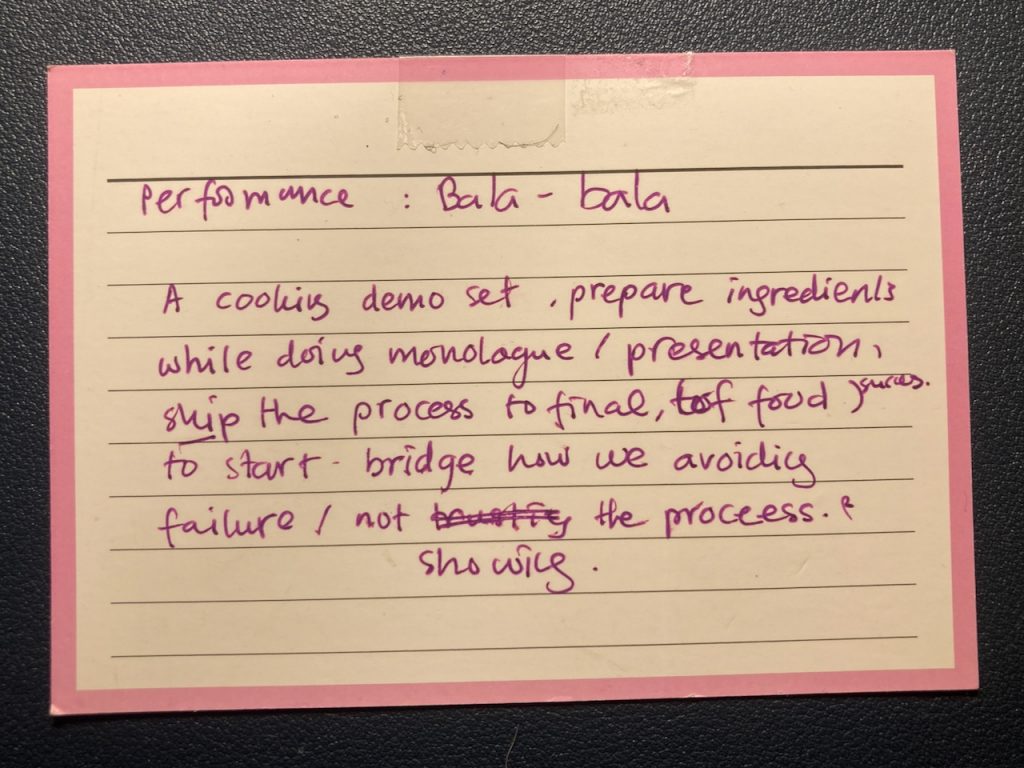 Performance : Bala - bala
A cooking demo set , prepare ingredients
while doing monologue / presentation,
skip the process to final, of food
to start - bridge how we avoiding
failure / not the proceess.
showing .